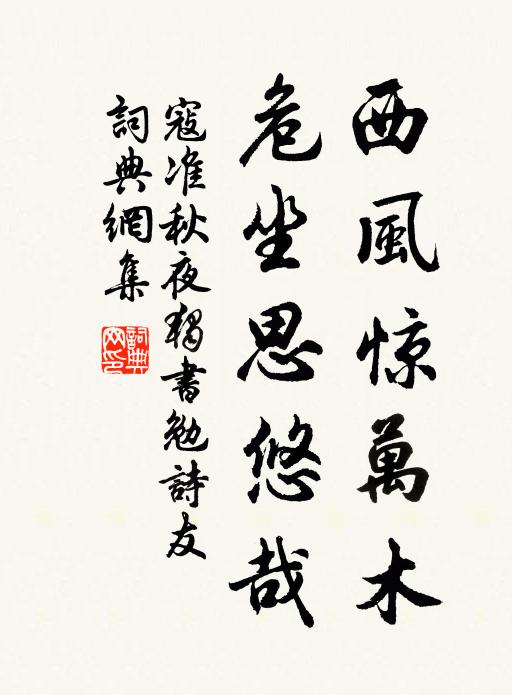 西風惊萬木
危坐思悠哉
寇准秋夜獨書勉詩友
詞典網集
詞典
网印